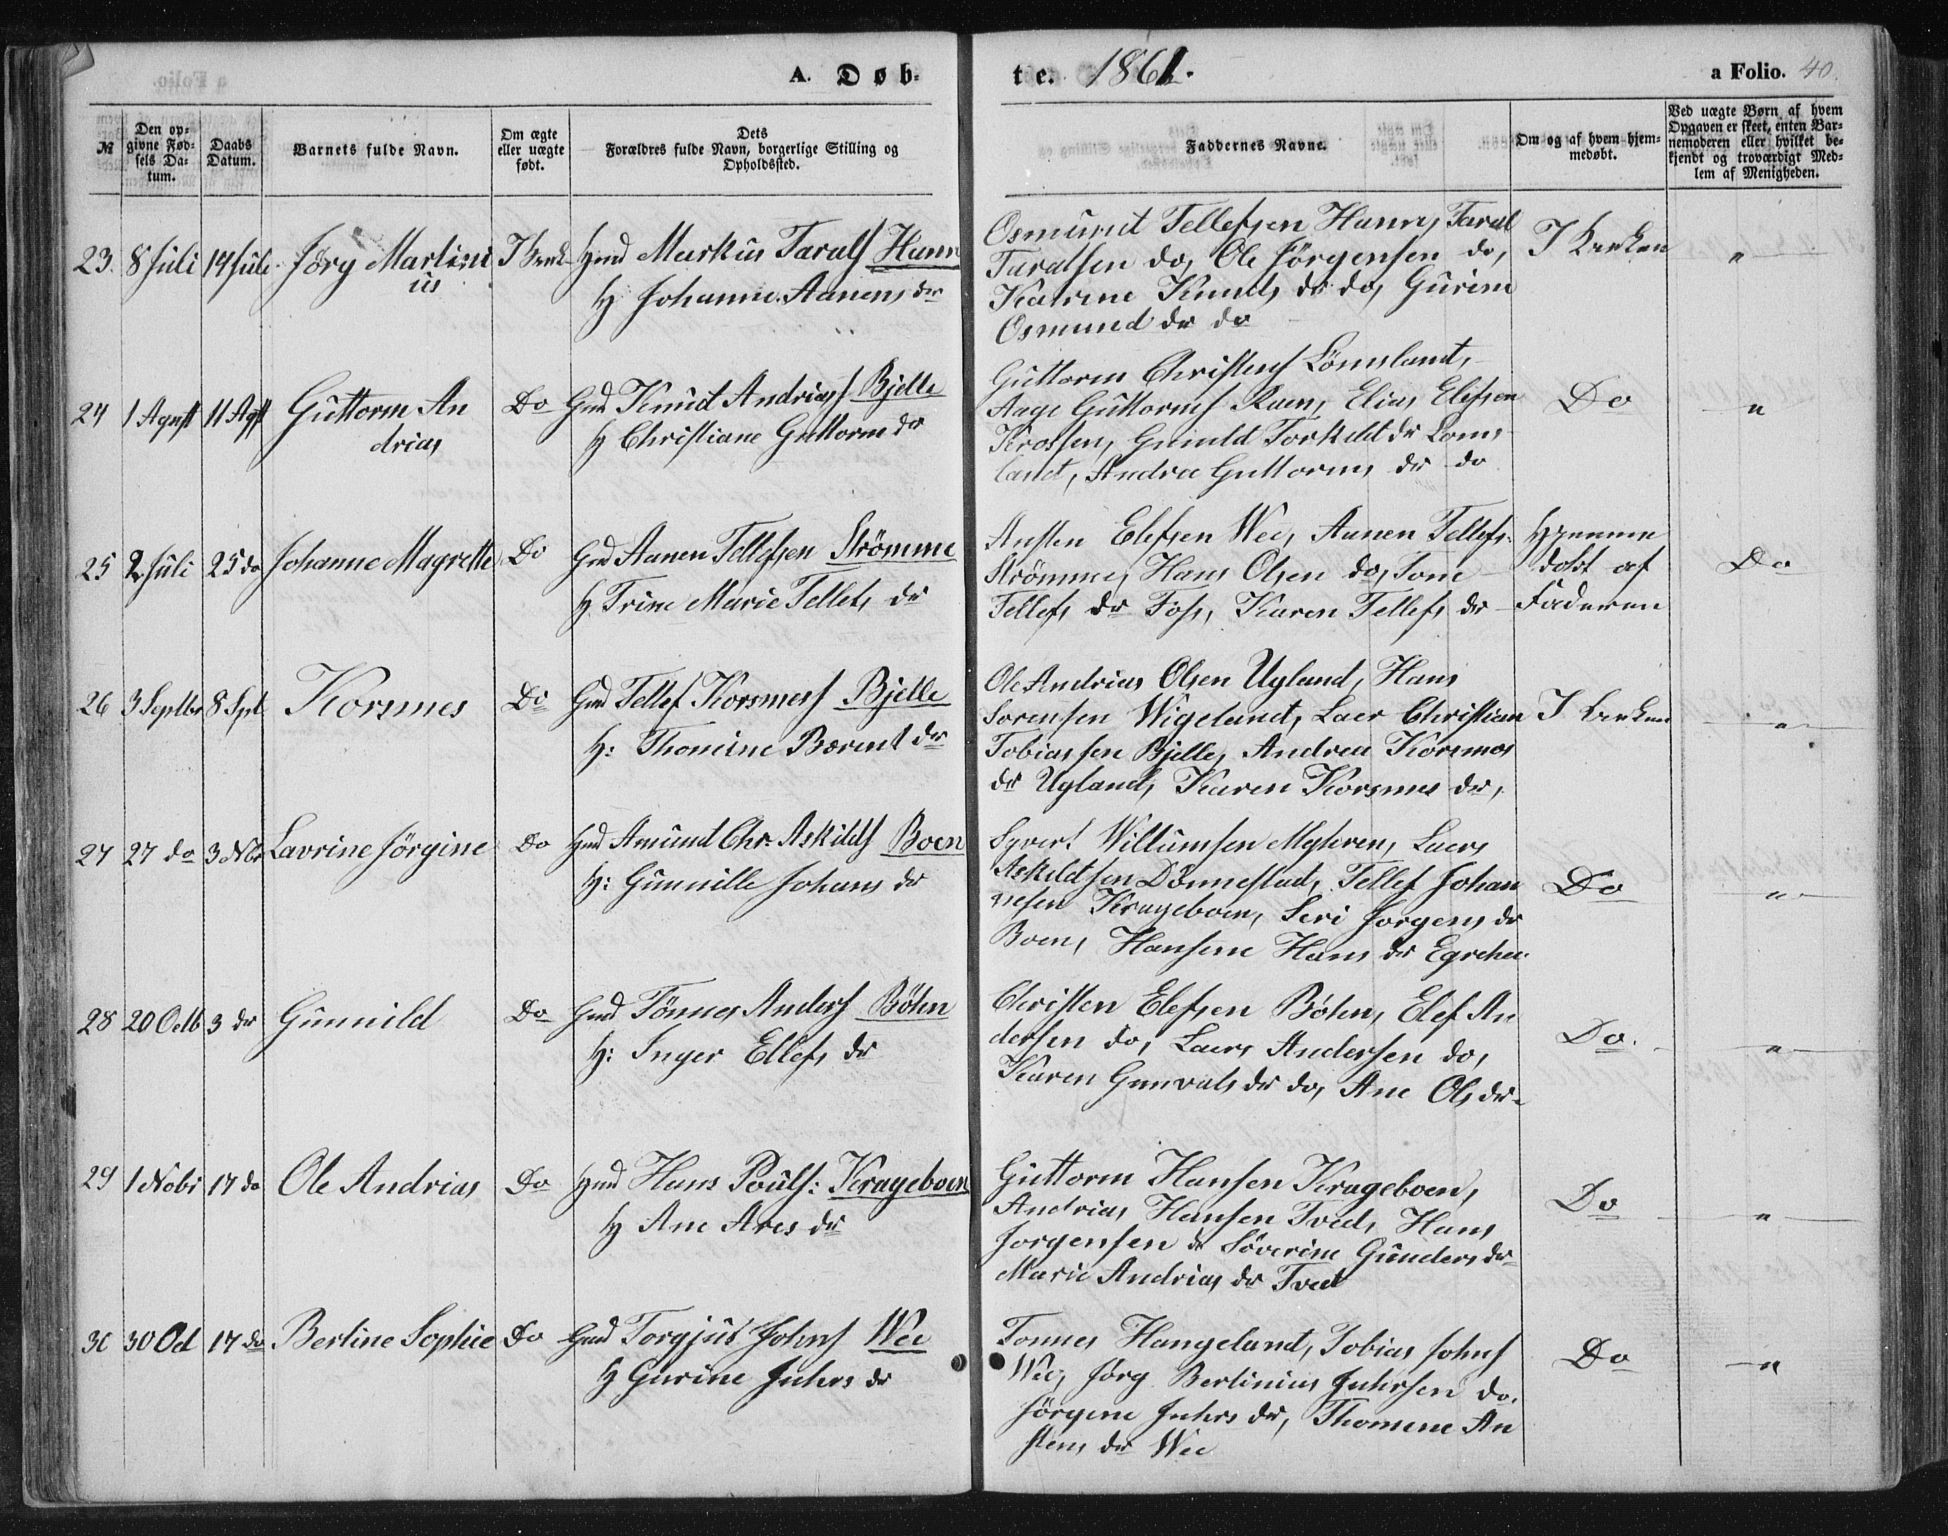 A. Døb-
te. 1861.
a Folio. 40.
№
Den op-
givne Fød-
sels Da-
tum.
Daabs
Datum.
Barnets fulde Navn.
Om ægte
eller uægte
født.
Dets
Forældres fulde Navn, borgerlige Stilling og
Opholdssted.
Faddernes Navne.
Om og af hvem hjem-
medøbt.
Ved uægte Børn af hvem
Opgaven er skeet, enten Bar-
nemoderen eller hvilket be-
kjendt og troværdigt Med-
lem af Menigheden.
23. 8 Juli 14 Juli Jörg Martini
us
Gmd Markus Taralfs Hann
H Johanne Aanens dr
Osmund Tellefsen Hann, Taral
Taralsen do, Ole Jörgensen do,
Katrine Knuds dr do, Gurine
Osmund dr do
I Kirken
"
24 1 Agust 11 Agst Guttorm An
drias
Do
Gmd Knud Andrias Bjelle
H Christiane Guttorm dr
Guttorm Christens Lönnslant,
Aage Guttorms Ruen, Elias Elefsen
Krossen, Gunild Torkeld dr Lons
land, Andrea Guttorms dr do
Do
"
25 2 Juli 25 do Johanne Magrette
Do
Gmd Aanen Tellefsen Strömme
H Trine Marie Tellefs dr
Ansten Elefsen Wee, Aanen Tellefs.
Strömme, Hans Olsen do, Tone
Tellefs dr Foss, Karen Tellefs dr
Hjemme
döbt af
Faderen
Do
26 3 Septbr 8 Spt Korsmes
Do
Gmd Tellef Korsmess Bjelle
H: Thomine Bærent dr
Ole Andrias Olsen Ugland, Hans
Sorensen Wigeland, Laer Christian
Tobiassen Bjelle, Andrea Korsmos
dr Ugland, Karen Korsmes dr,
I Kirken
"
27 27 do 3 Nbr Lavrine Jörgine
Do
Gmd Amund Chr. Askilds Boen
H: Gunnille Johans dr
Syvert Willumsen Myhren, Laers
Askildsen Dönnestad, Tellef Johan
nesen Krageboen, Seri Jorgens dr
Boen, Hansine Hans dr
Do
"
28 20 Octb 3 do Gunnild
Do
Gmd Tönnes Anders Böhn
H: Inger Ellefs dr
Christen Elefsen Böhn, Elef An
dersen do, Laers Andersen do,
Karen Gunvals dr do, Ane Ols dr
Do.
"
29 1 Nobr 17 do Ole Andrias
Do
Gmd Hans Pouls: Krageboen
H Ane Ares dr
Guttorm Hansen Krageboen,
Andrias Hansen Tved, Hans
Jorgensen do Söverine Gunders dr
Marie Andrias dr Tved
Do
"
30 30 Oct 17 do Bertine Sophie
Do
Gmd Torgjus Johns Wee
H Gurine Juhrs dr
Tonnes Haugeland, Tobias Johns
Wee, Jörg Bertinius Juhrsen do.
Jörgene Juhrs dr, Thomine An
stens dr Wee
Do
"